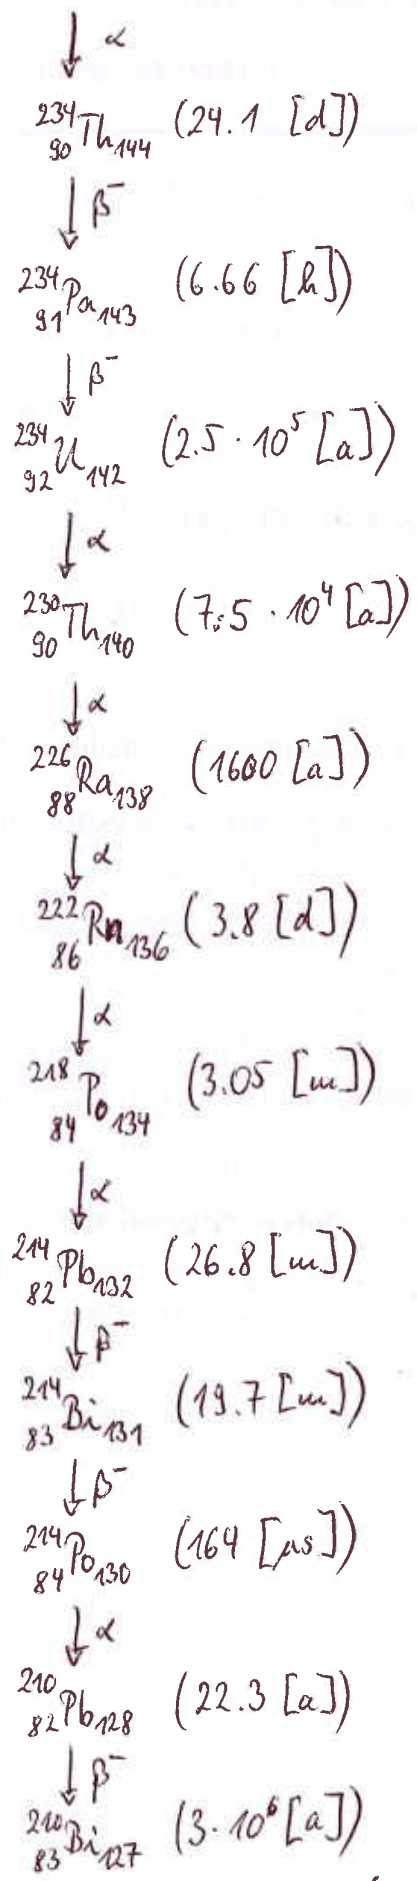 ↓ α
²³⁴₉₀Th₁₄₄ (24.1 [d])
↓ β⁻
²³⁴₉₁Pa₁₄₃ (6.66 [h])
↓ β⁻
²³⁴₉₂U₁₄₂ (2.5 · 10⁵ [a])
↓ α
²³⁰₉₀Th₁₄₀ (7.5 · 10⁴ [a])
↓ α
²²⁶₈₈Ra₁₃₈ (1600 [a])
↓ α
²²²₈₆Rn₁₃₆ (3.8 [d])
↓ α
²¹⁸₈₄Po₁₃₄ (3.05 [m])
↓ α
²¹⁴₈₂Pb₁₃₂ (26.8 [m])
↓ β⁻
²¹⁴₈₃Bi₁₃₁ (19.7 [m])
↓ β⁻
²¹⁴₈₄Po₁₃₀ (164 [μs])
↓ α
²¹⁰₈₂Pb₁₂₈ (22.3 [a])
↓ β⁻
²¹⁰₈₃Bi₁₂₇ (3 · 10⁶ [a])